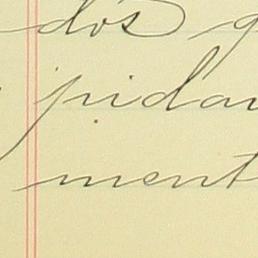 dós
pidam
ment